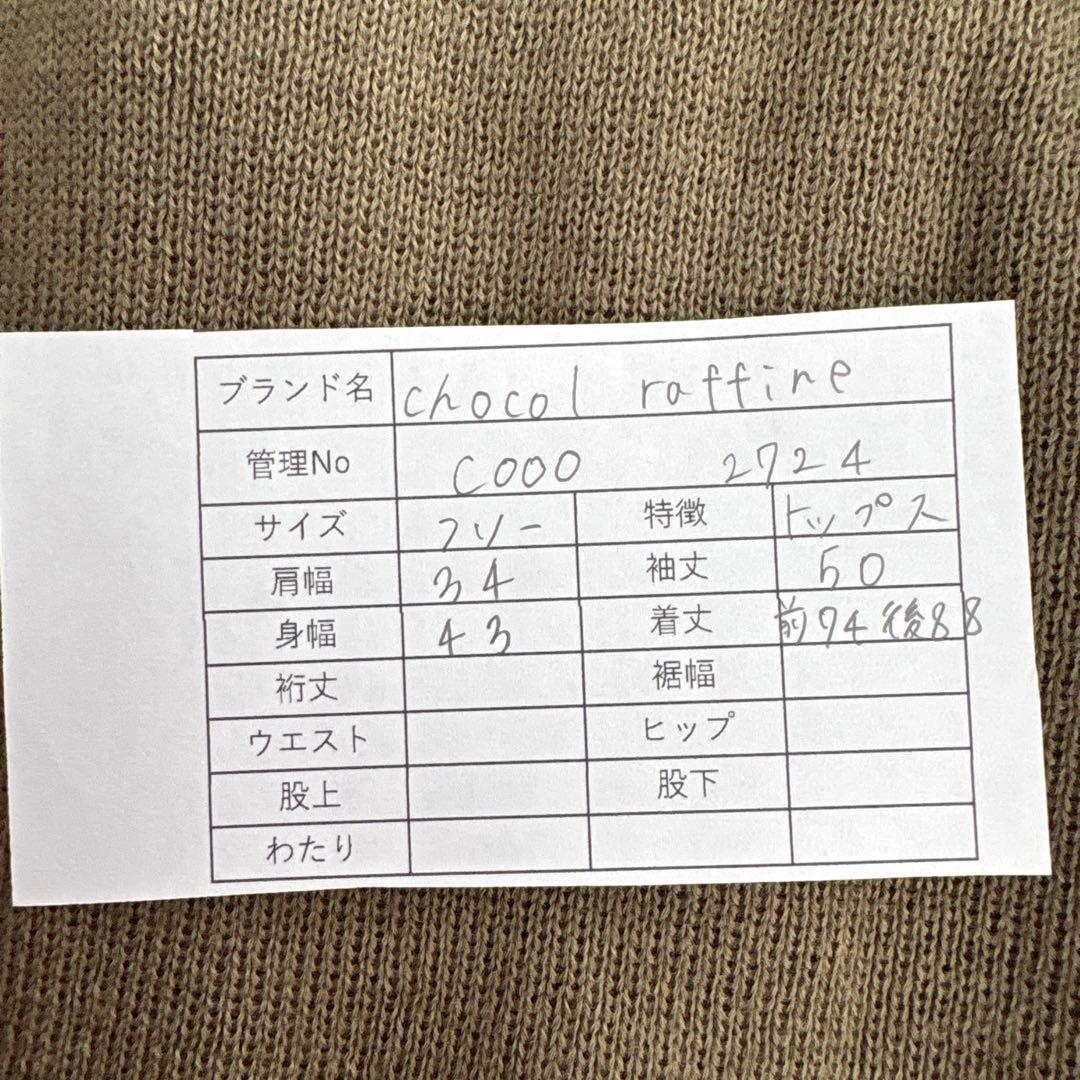 ブランド名 chocol raffine
管理No C000 2724
サイズ フリー 特徴 トップス
肩幅 34 袖丈 50
身幅 43 着丈 前74 後88
裄丈 裾幅
ウエスト ヒップ
股上 股下
わたり